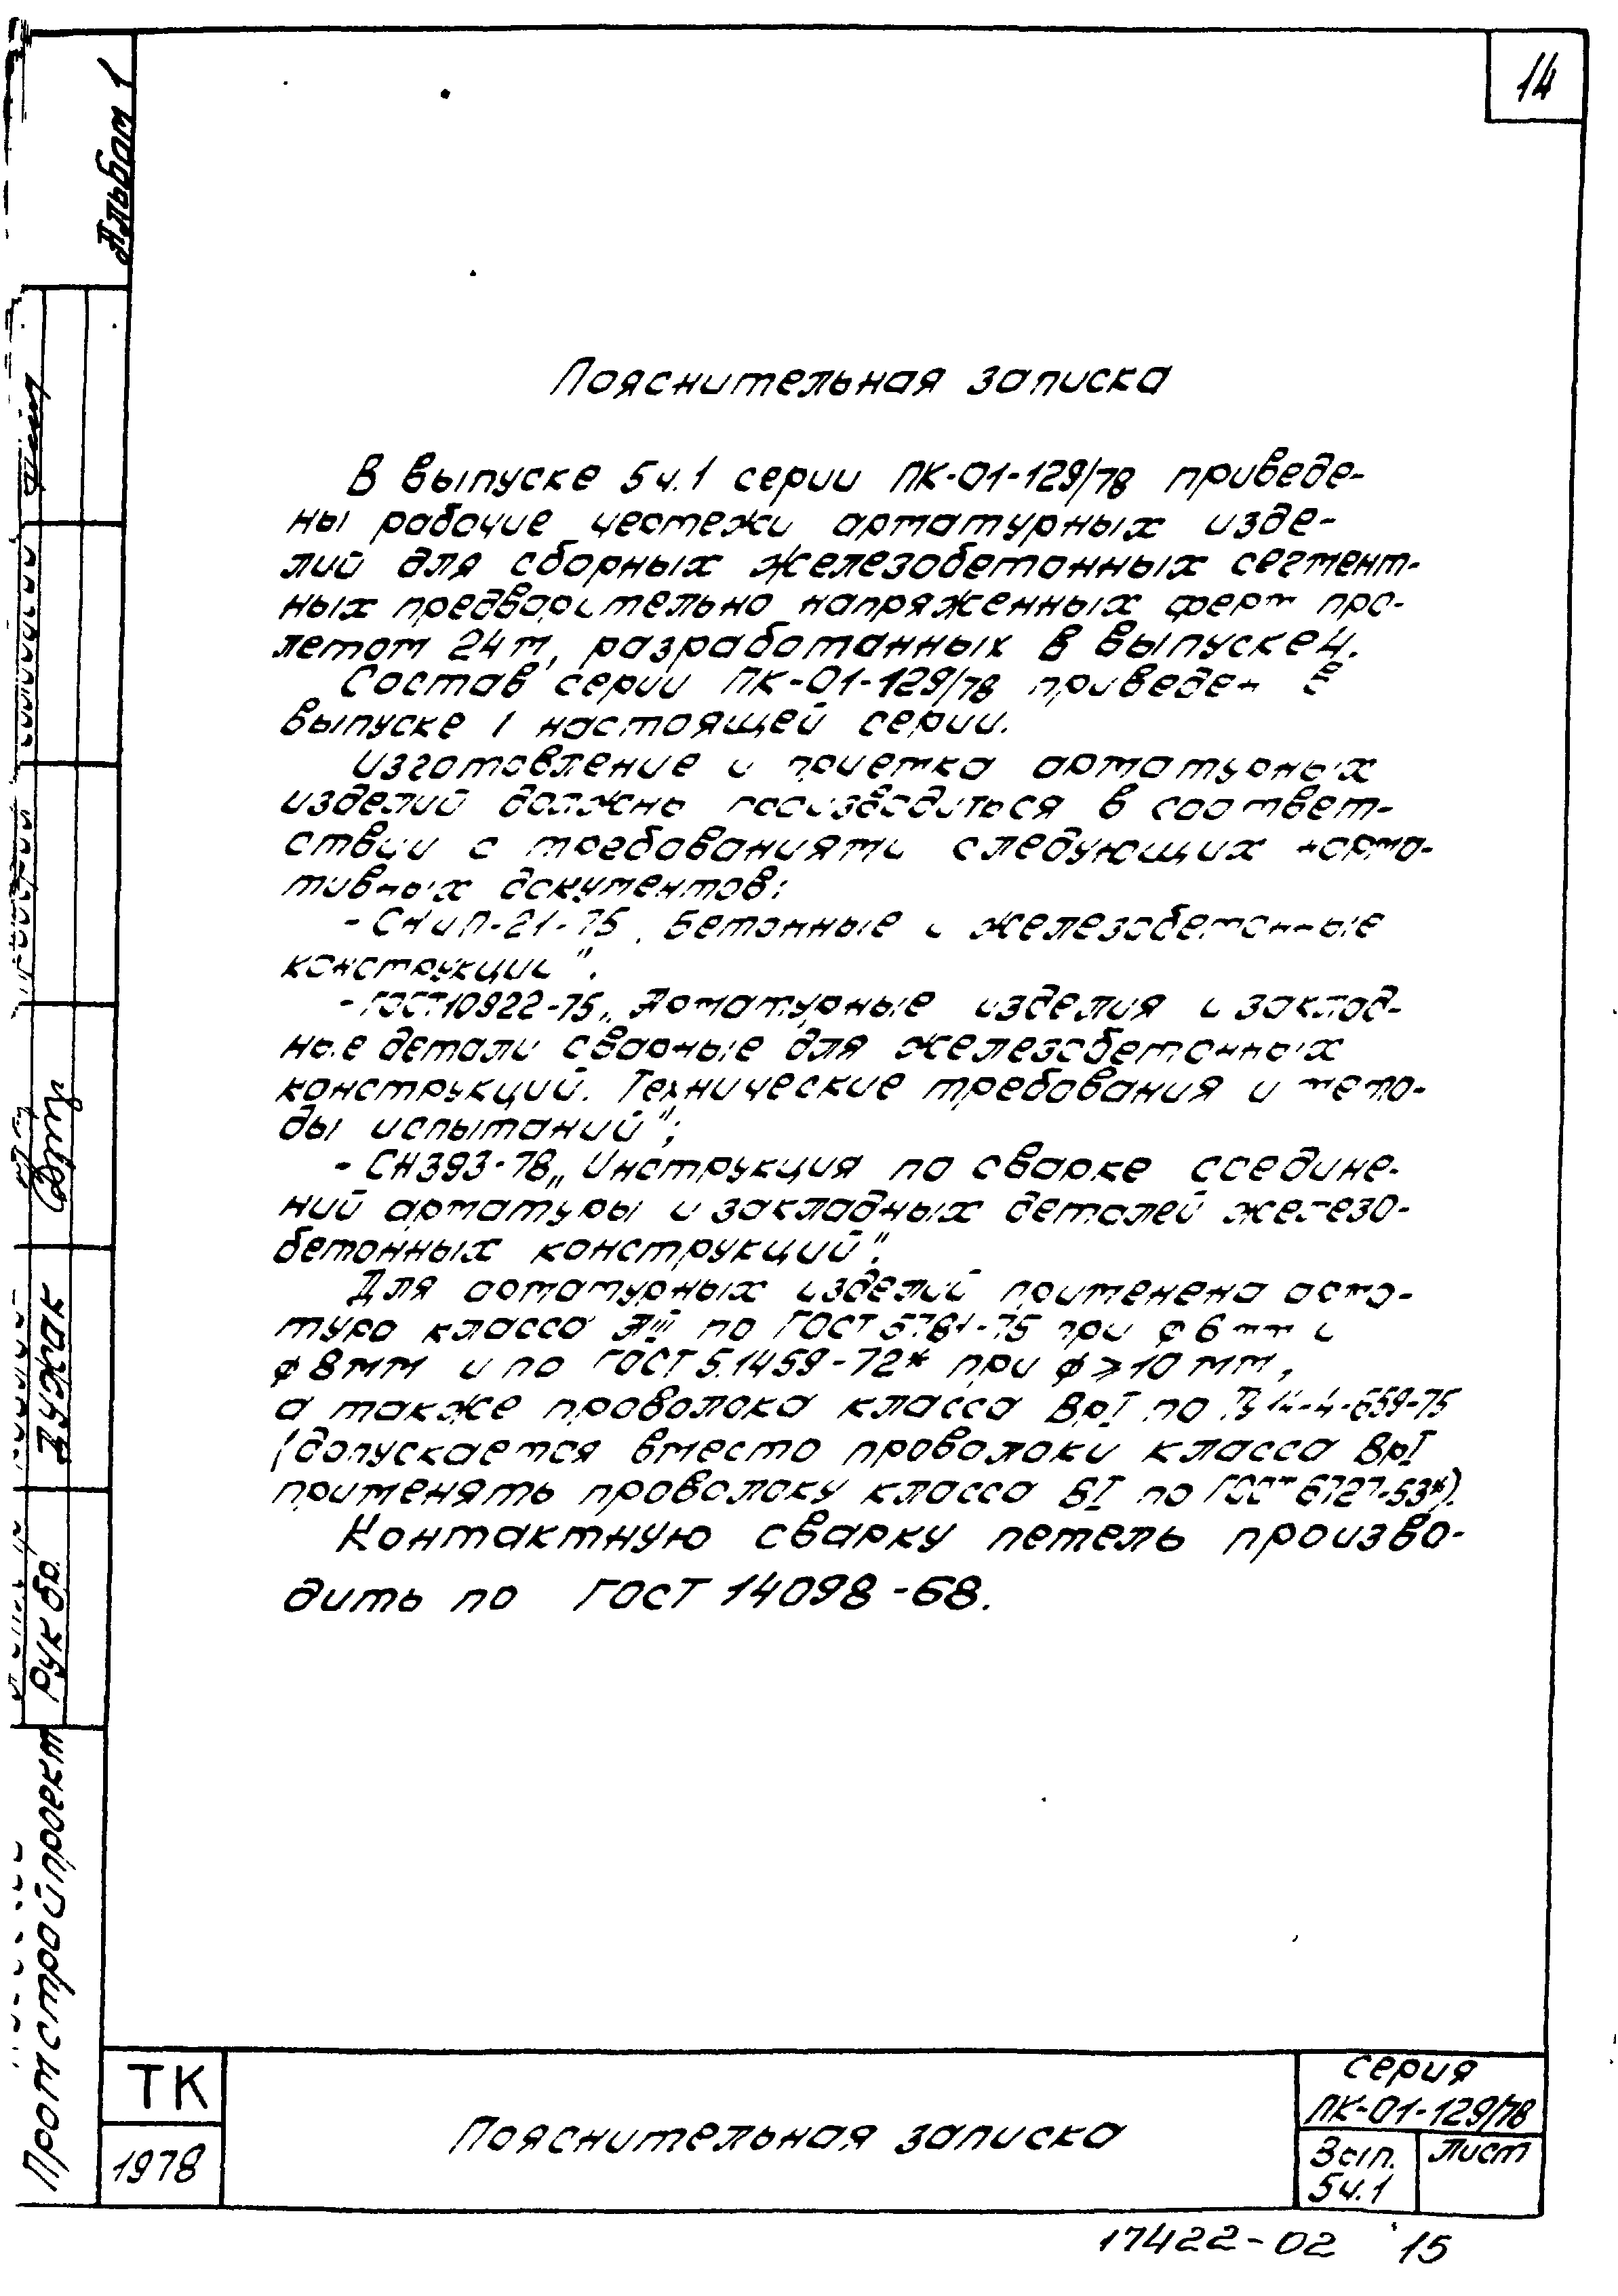 14
Альбом 1
Пояснительная записка
В выпуске 5 ч.1 серии ПК-01-129/78 приведе-
ны рабочие чертежи арматурных изде-
лий для сборных железобетонных сегмент-
ных предварительно напряженных ферм про-
летом 24 м, разработанных в выпуске 4.
Состав серии ПК-01-129/78 приведен в
выпуске 1 настоящей серии.
Изготовление и приемка арматурных
изделий должно производиться в соответ-
ствии с требованиями следующих норма-
тивных документов:
- СНиП-21-75 „Бетонные и железобетонные
конструкции".
- ГОСТ 10922-75 „Арматурные изделия и заклад-
ные детали сварные для железобетонных
конструкций. Технические требования и мето-
ды испытаний";
- СН 393-78 „Инструкция по сварке соедине-
ний арматуры и закладных деталей железо-
бетонных конструкций".
Для арматурных изделий применена арма-
тура класса АIII по ГОСТ 5781-75 при ф 6 мм и
ф 8 мм и по ГОСТ 5.1459-72* при ф ≥ 10 мм,
а также проволока класса ВрI по ТУ 14-4-659-75
(допускается вместо проволоки класса ВрI
применять проволоку класса БI по ГОСТ 6727-53*).
Контактную сварку петель произво-
дить по ГОСТ 14098-68.
Рук бр.
Дужак
Промстройпроект
ТК
1978
Пояснительная записка
серия
ПК-01-129/78
Вып.
5 ч.1
Лист
17422-02 15